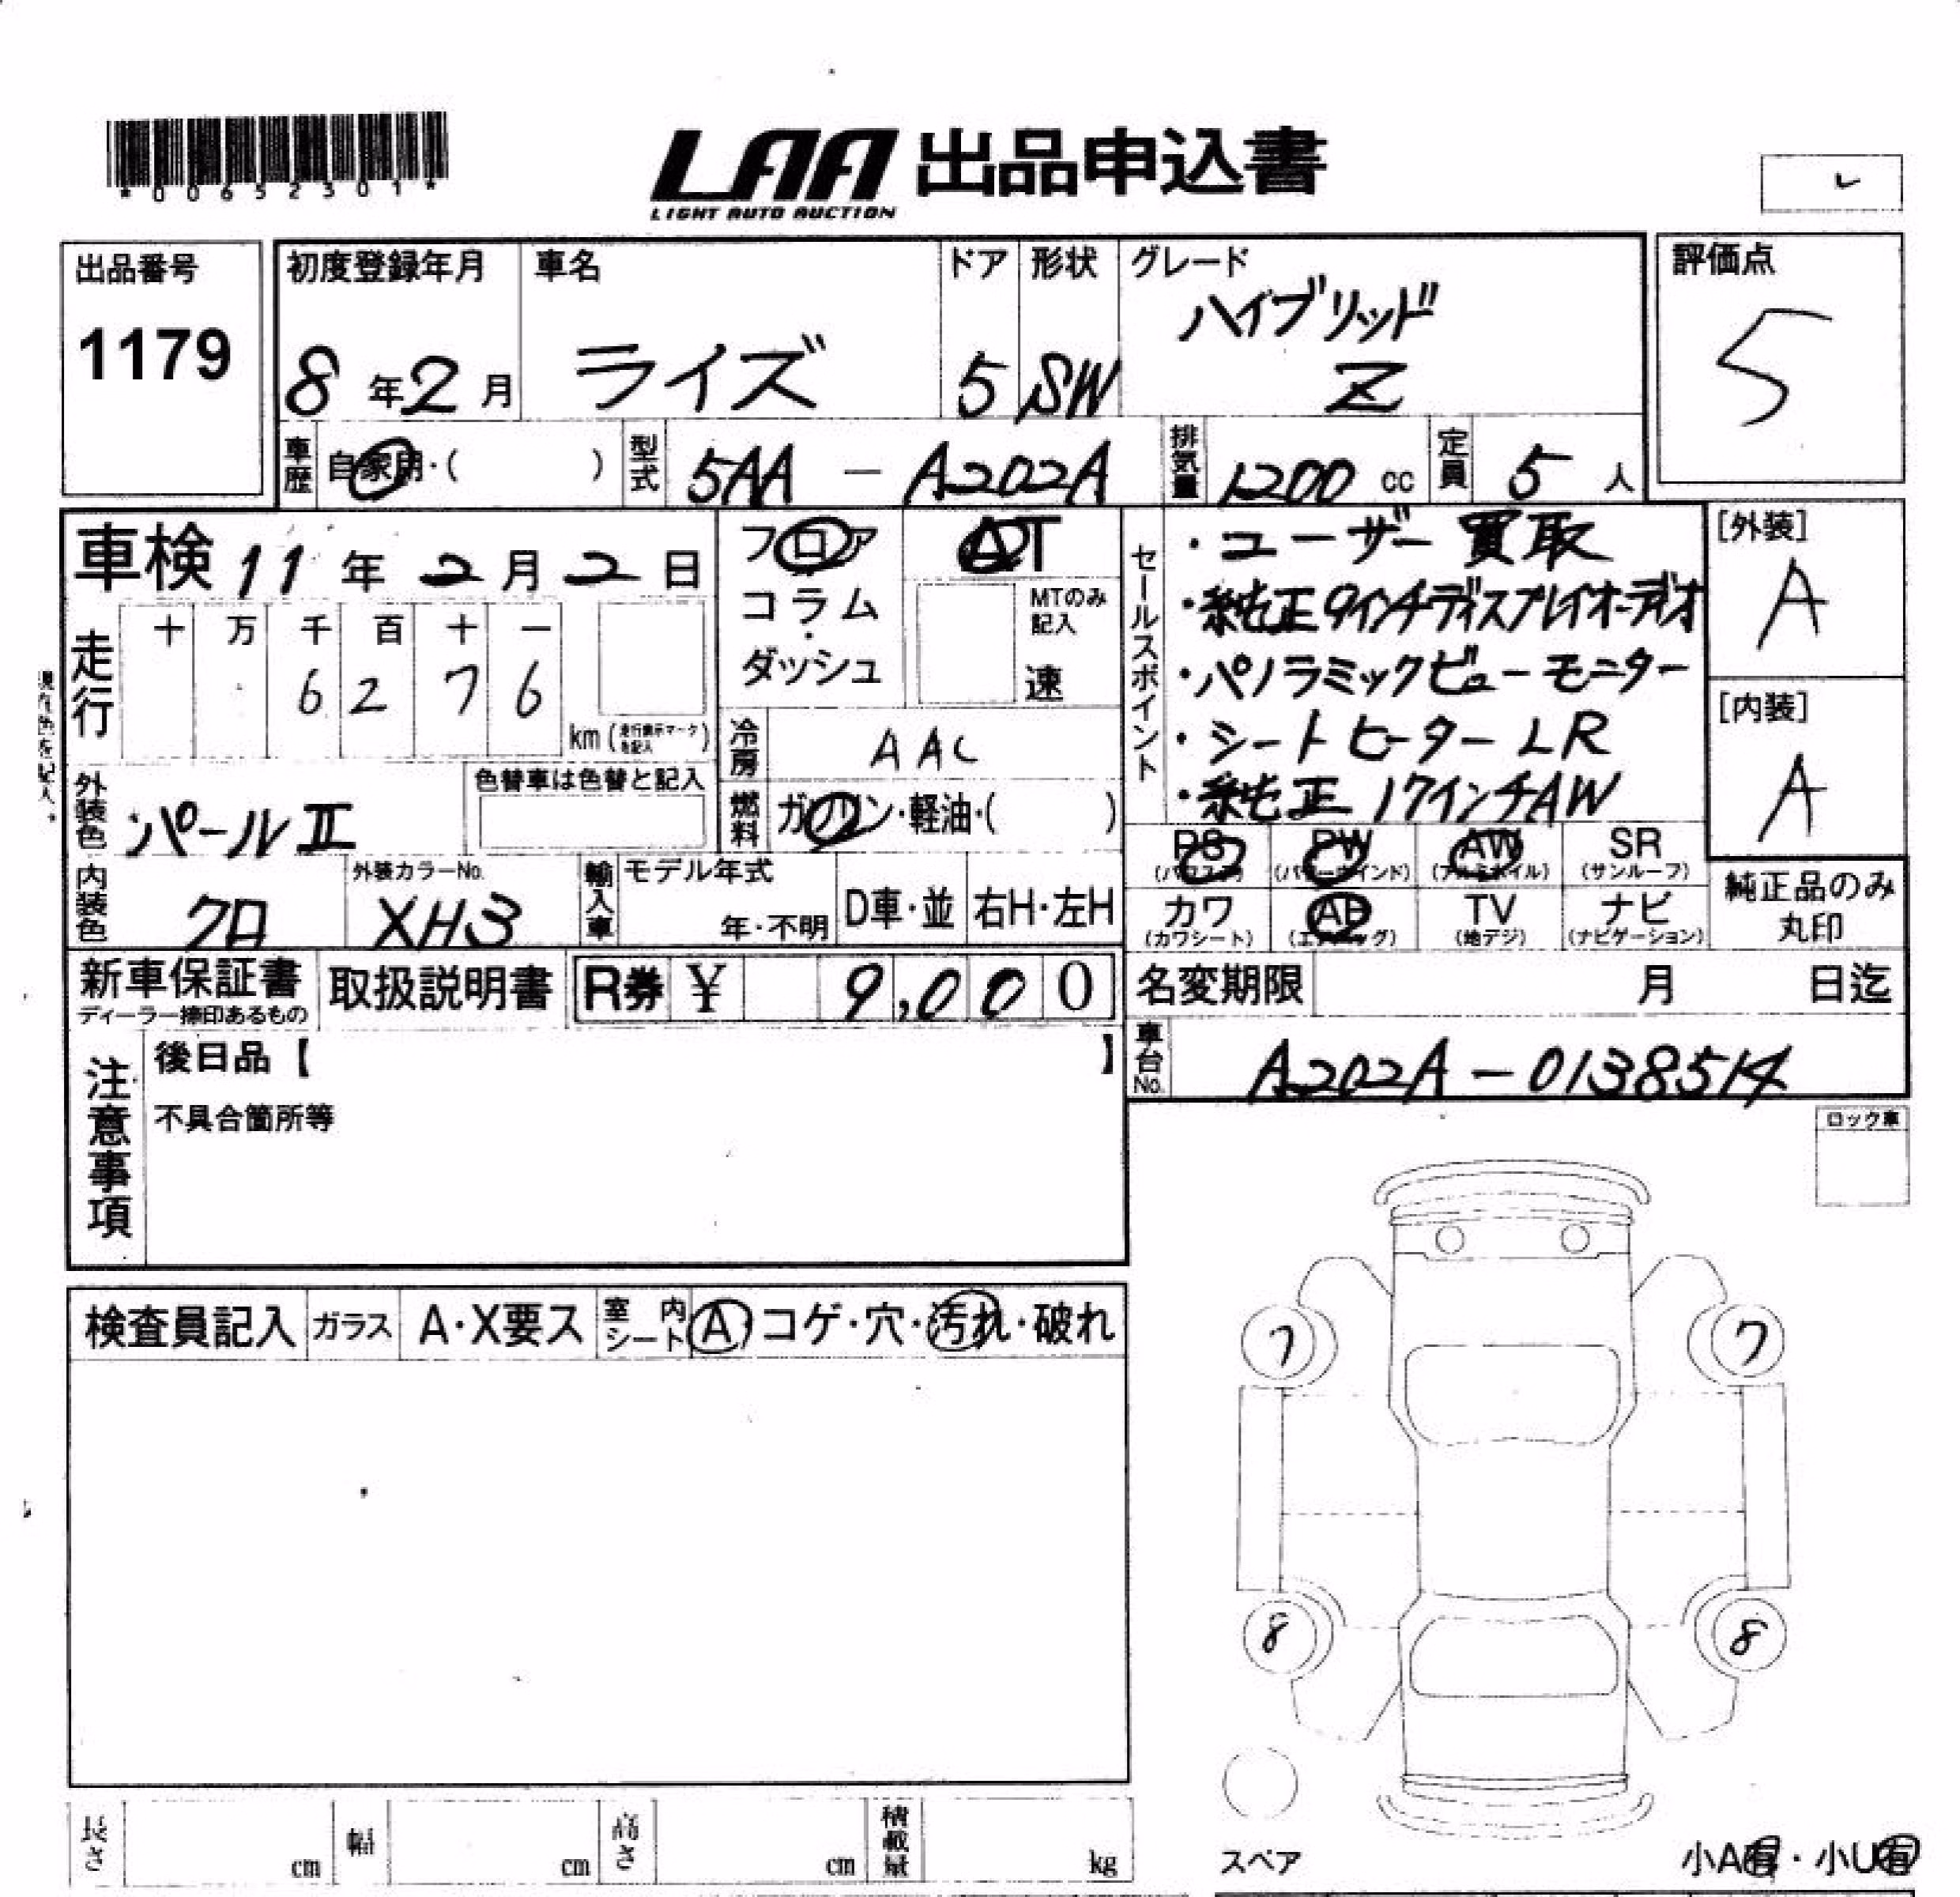 *00652301*
LAA 出品申込書
LIGHT AUTO AUCTION
出品番号
1179
初度登録年月
8年2月
車名
ライズ
ドア
5
形状
SW
グレード
ハイブリッド
Z
評価点
5
車歴 自家用・( )
型式 5AA - A202A
排気量 1200 cc
定員 5 人
車検 11年2月2日
走行
十 万 千 百 十 一
6 2 7 6
km (走行表示マークを記入)
フロア
コラム
・
ダッシュ
AT
MTのみ
記入
速
冷房 AAC
燃料 ガソリン・軽油・( )
セールスポイント
・ユーザー買取
・純正9インチディスプレイオーディオ
・パノラミックビューモニター
・シートヒーターLR
・純正17インチAW
[外装]
A
[内装]
A
外装色 パールⅡ
色替車は色替と記入
内装色 クロ
外装カラーNo.
XH3
輸入車
モデル年式
年・不明
D車・並
右H・左H
PS (パワステ)
PW (パワーウインド)
AW (アルミホイル)
SR (サンルーフ)
カワ (カワシート)
AB (エアバッグ)
TV (地デジ)
ナビ (ナビゲーション)
純正品のみ
丸印
新車保証書
ディーラー捺印あるもの
取扱説明書
R券 ¥ 9,000
名変期限 月 日迄
車台No. A202A-0138514
注意事項
後日品【 】
不具合箇所等
ロック車
検査員記入 ガラス A・X要ス 室内シート A コゲ・穴・汚れ・破れ
7 7
8 8
スペア
小A有・小U有
長さ cm 幅 cm 高さ cm 積載量 kg